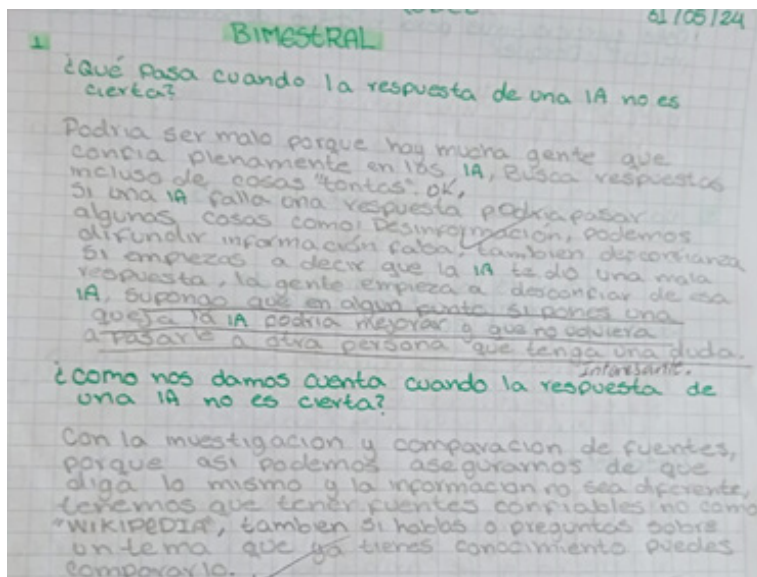 61/05/24
BIMESTRAL
1
¿Qué pasa cuando la respuesta de una IA no es
cierta?
Podria ser malo porque hay mucha gente que
confia plenamente en las IA, Busca respuestas
incluso de cosas "tontas". OK,
Si una IA falla una respuesta podria pasar
algunas cosas como: Desinformación, podemos
difundir información falsa, tambien desconfianza
si empiezas a decir que la IA te dio una mala
respuesta, la gente empieza a desconfiar de esa
IA, supongo que en algun punto si pones una
queja la IA podria mejorar y que no
a pasarle a otra persona que tenga una duda.
Interesante.
¿como nos damos cuenta cuando la respuesta de
una IA no es cierta?
Con la investigacion y comparacion de fuentes,
porque asi podemos asegurarnos de que
diga lo mismo y la informacion no sea diferente,
tenemos que tener fuentes confiables no como
"WIKIPEDIA", tambien si hablas o preguntas sobre
un tema que ya tienes conocimiento puedes
compararlo.